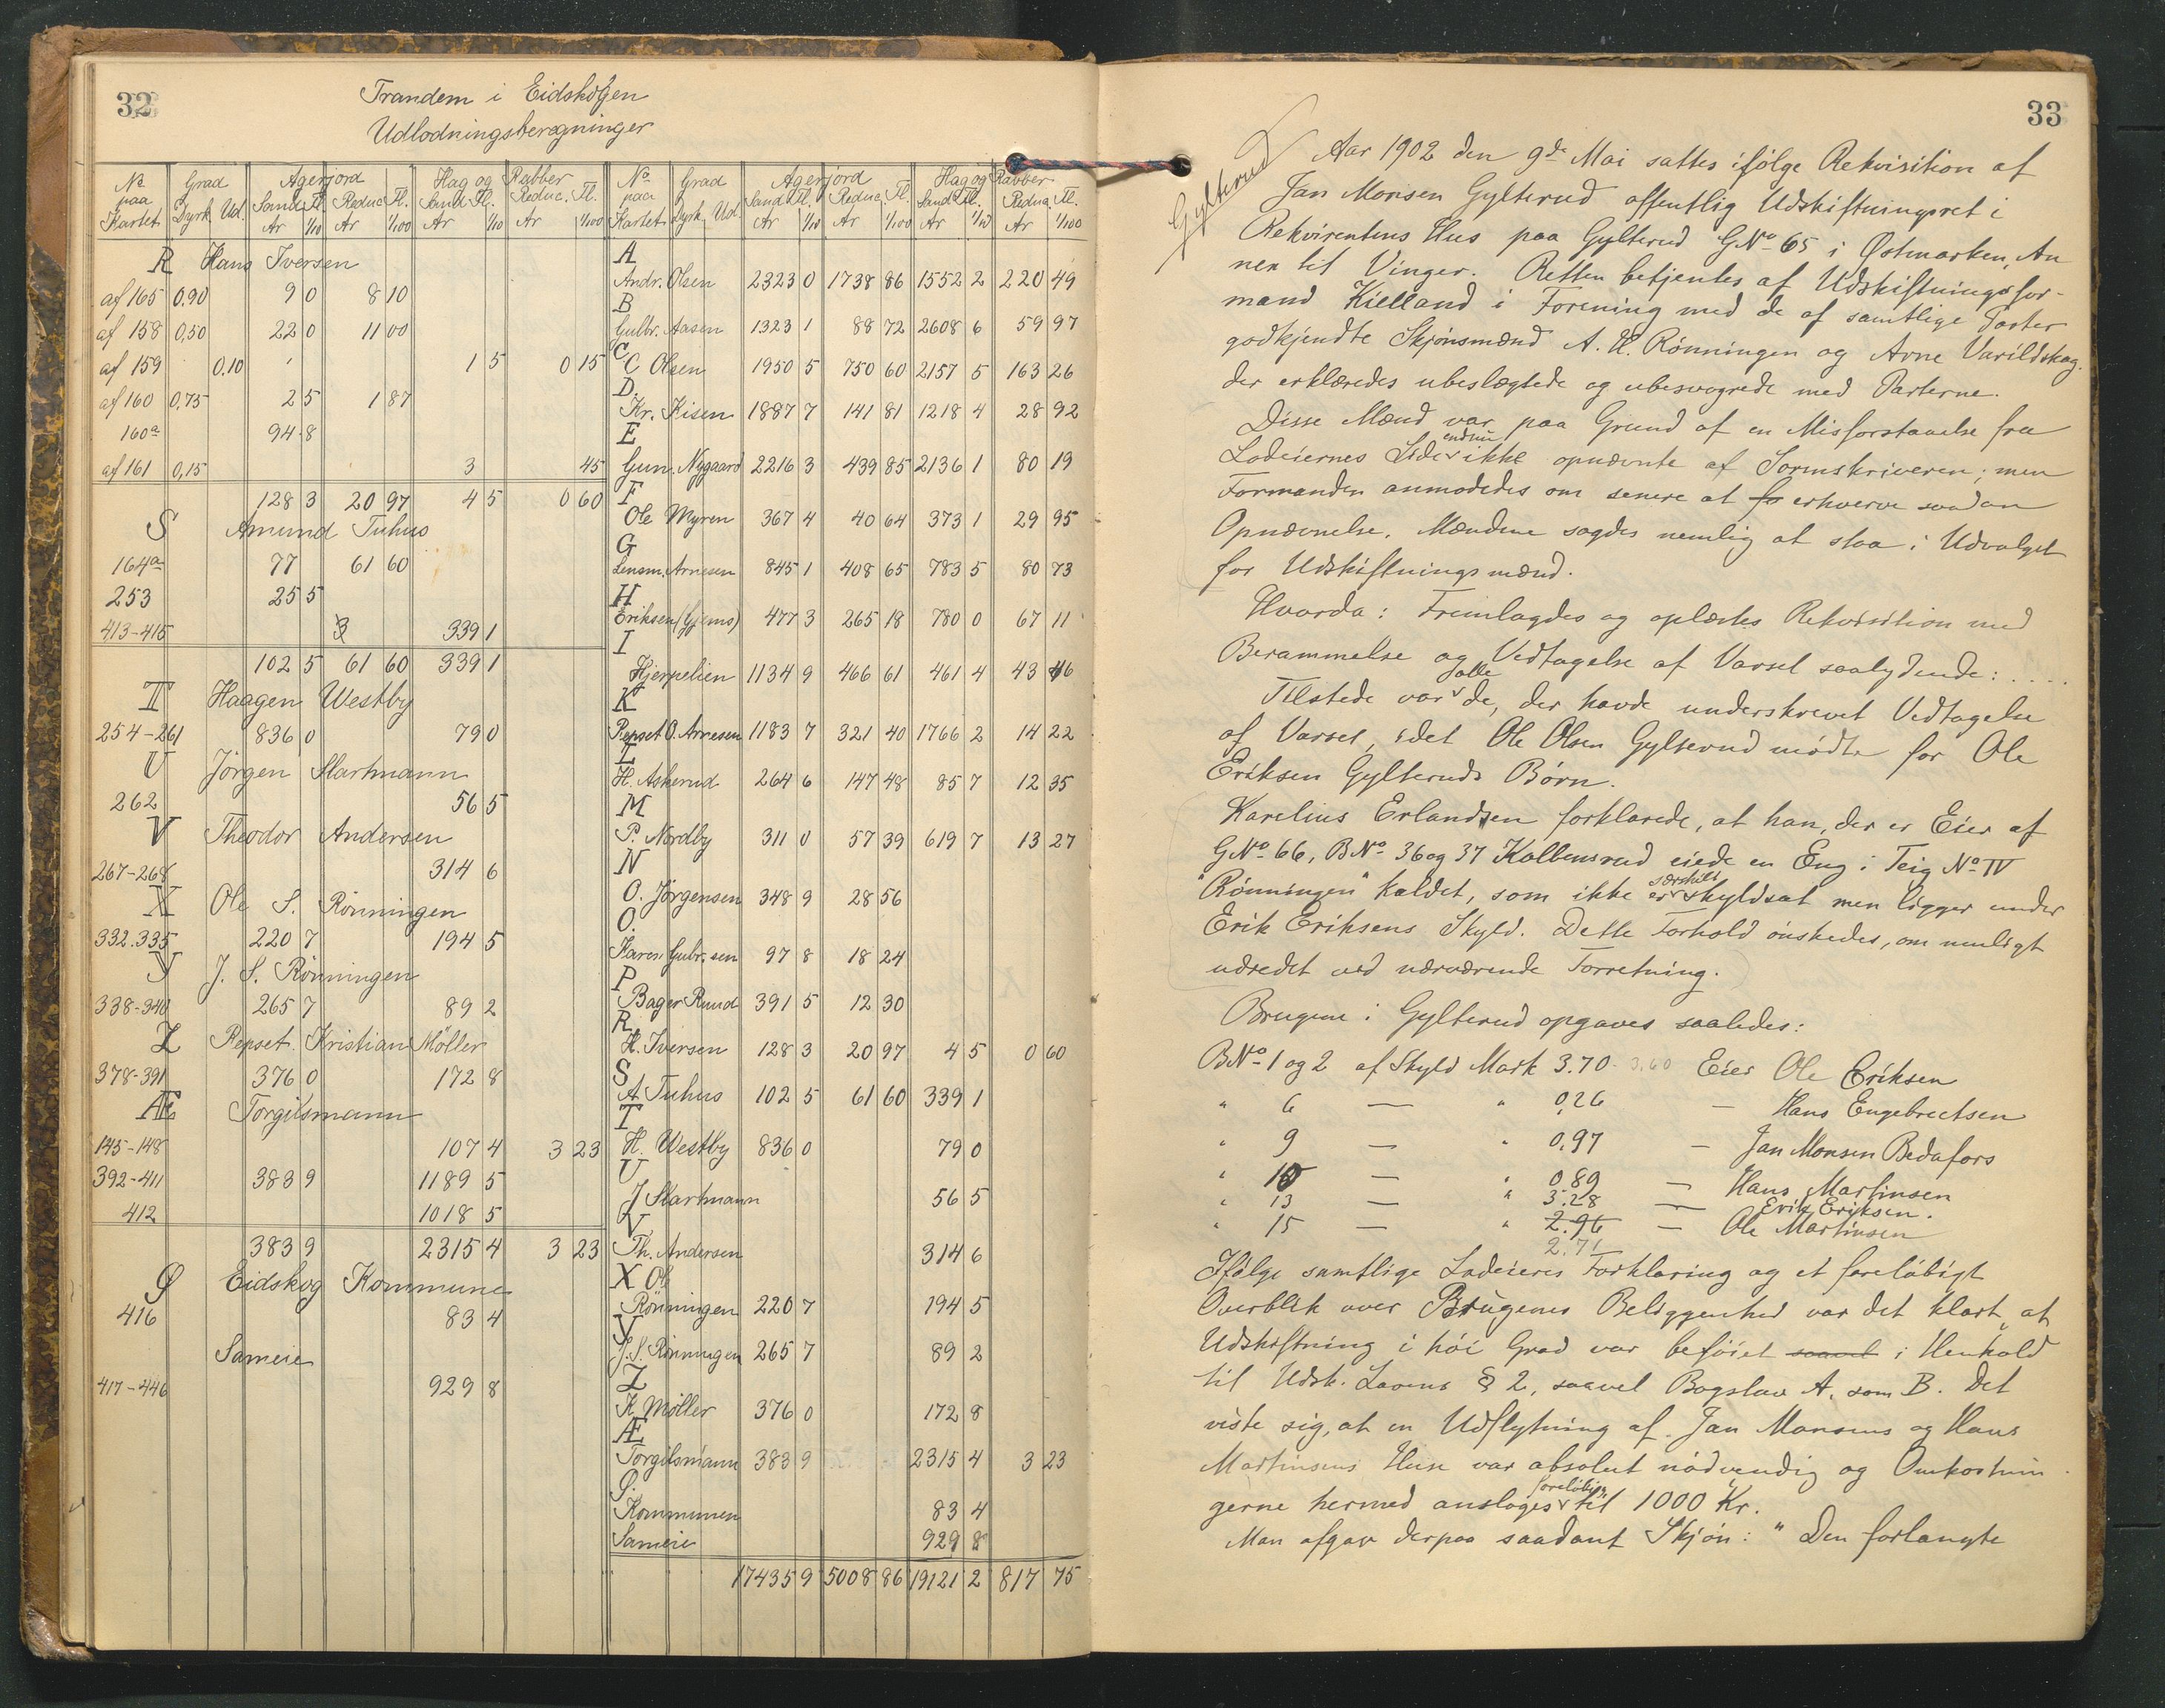 32
Trandem i Eidskogen
Udlodningsberegninger
No paa Kartet | Grad Dyrk. Ud. | Agerjord Sand Fl. Ar 1/10 Reduc. Fl. Ar 1/100 | Hag og Rabber Sand Fl. Ar 1/10 Reduc. Fl. Ar 1/100
R Hans Iversen
af 165 0,90 9 0 8 10
af 158 0,50 22 0 11 00
af 159 0.10 1 5 0 15
af 160 0,75 2 5 1 87
160a 94 8
af 161 0,15 3 45
128 3 20 97 4 5 0 60
S Amund Tuhus
164a 77 61 60
253 25 5
413-415 339 1
102 5 61 60 339 1
T Haagen Westby
254-261 836 0 79 0
U Jörgen Martmann
262 56 5
V Theodor Andersen
267-268 314 6
X Ole S. Rönningen
332.335 220 7 194 5
Y J. S. Rönningen
338-340 265 7 89 2
Z Repset. Kristian Möller
378-391 376 0 172 8
Æ Torgilsmann
145-148 107 4 3 23
392-411 383 9 1189 5
412 1018 5
383 9 2315 4 3 23
Ø Eidskog Kommune
416 83 4
Sameie
417-446 929 8
No paa Kartet | Grad Dyrk. Ud. | Agerjord Sand Fl. Ar 1/10 Reduc. Fl. Ar 1/100 | Hag og Rabber Sand Fl. Ar 1/10 Reduc. Fl. Ar 1/100
A
Andr. Olsen 2323 0 1738 86 1552 2 220 49
B
Gulbr. Aasen 1323 1 88 72 2608 6 59 97
C
C Olsen 1950 5 750 60 2157 5 163 26
D.
Kr. Kisen 1887 7 141 81 1218 4 28 92
E
Gun. Nygaard 2216 3 439 85 2136 1 80 19
F
Ole Myren 367 4 40 64 373 1 29 95
G
Lensm. Arnesen 845 1 408 65 783 5 80 73
H
Eriksen (Gjems) 477 3 265 18 780 0 67 11
I
Hjerpelien 1134 9 466 61 461 4 43 46
K
Repset O. Arnesen 1183 7 321 40 1766 2 14 22
L
H. Askerud 264 6 147 48 85 7 12 35
M
P. Nordby 311 0 57 39 619 7 13 27
N
O. Jörgensen 348 9 28 56
O.
Karen Gubr.sen 97 8 18 24
P
Bager Ruud 391 5 12 30
R.
H. Iversen 128 3 20 97 4 5 0 60
S
A Tuhus 102 5 61 60 339 1
T
H. Westby 836 0 79 0
U
J Martmann 56 5
V
Th. Andersen 314 6
X Ol
Rönningen 220 7 194 5
Y
J. S. Rönningen 265 7 89 2
Z
K Möller 376 0 172 8
Æ
Torgilsmann 383 9 2315 4 3 23
Ø.
Kommunen 83 4
Sameie 929 8
17435 9 5008 86 19121 2 817 75
33
Gylterud
Aar 1902 den 9de Mai sattes ifölge Rekvisition af
Jan Monsen Gylterud offentlig Udskiftningsret i
Rekvirentens Hus paa Gylterud GNo 65 i Østmarken, An
nex til Vinger. Retten betjentes af Udskiftningsfor-
mand Kielland i Forening med de af samtlige Parter
godkjendte Skjönsmænd A. H. Rönningen og Arne Varildskog.
der erklæredes ubeslægtede og ubesvogrede med Parterne.
Disse Mænd var paa Grund af en Misforstaaelse fra
Lodeiernes Side endnu ikke opnævnte af Sorenskriveren; men
Formanden anmodedes om senere at fo erhverve saadan
Opnævnelse. Mændene sagdes nemlig at staa i Udvalget
for Udskiftningsmænd.
Hvorda: Fremlagdes og oplæstes Rekvisition med
Berammelse og Vedtagelse af Varsel saalydende: ....
Tilstede var alle de, der havde underskrevet Vedtagelse
af Varsel, idet Ole Olsen Gylterud mödte for Ole
Eriksen Gylteruds Börn.
Karelius Erlandsen forklarede, at han, der er Eier af
GNo 66, BNo 36 og 37 Kolbensrud eiede en Eng i Teig No IV
"Rönningen" kaldet, som ikke er særskilt skyldsat men ligger under
Erik Eriksens Skyld. Dette Forhold önskedes, om muligt
udredet ved nærværende Forretning.
Brugene i Gylterud opgaves saaledes:
BNo 1 og 2 af Skyld Mark 3.70 3.60 Eier Ole Eriksen
" 6 — " 0,26 — Hans Engebretsen
" 9 — " 0.97 — Jan Monsen Bedafors
" 10 — " 0.89 — Hans Martinsen
" 13 — " 3.28 — Erik Eriksen.
" 15 — " 2.96 — Ole Martinsen
2.71
Ifölge samtlige Lodeieres Forklaring og et foreløbigt
Overblik over Brugenes Beliggenhed var det klart, at
Udskiftning i höi Grad var beföiet saavel i Henhold
til Udsk. Lovens § 2, saavel Bogstav A. som B. Det
viste sig, at en Udflytning af Jan Monsens og Hans
Martinsens Huse var absolut nödvendig og Omkostnin
gerne hermed ansloges foreløbig til 1000 Kr.
Man afgav derpaa saadant Skjön: "Den forlangte